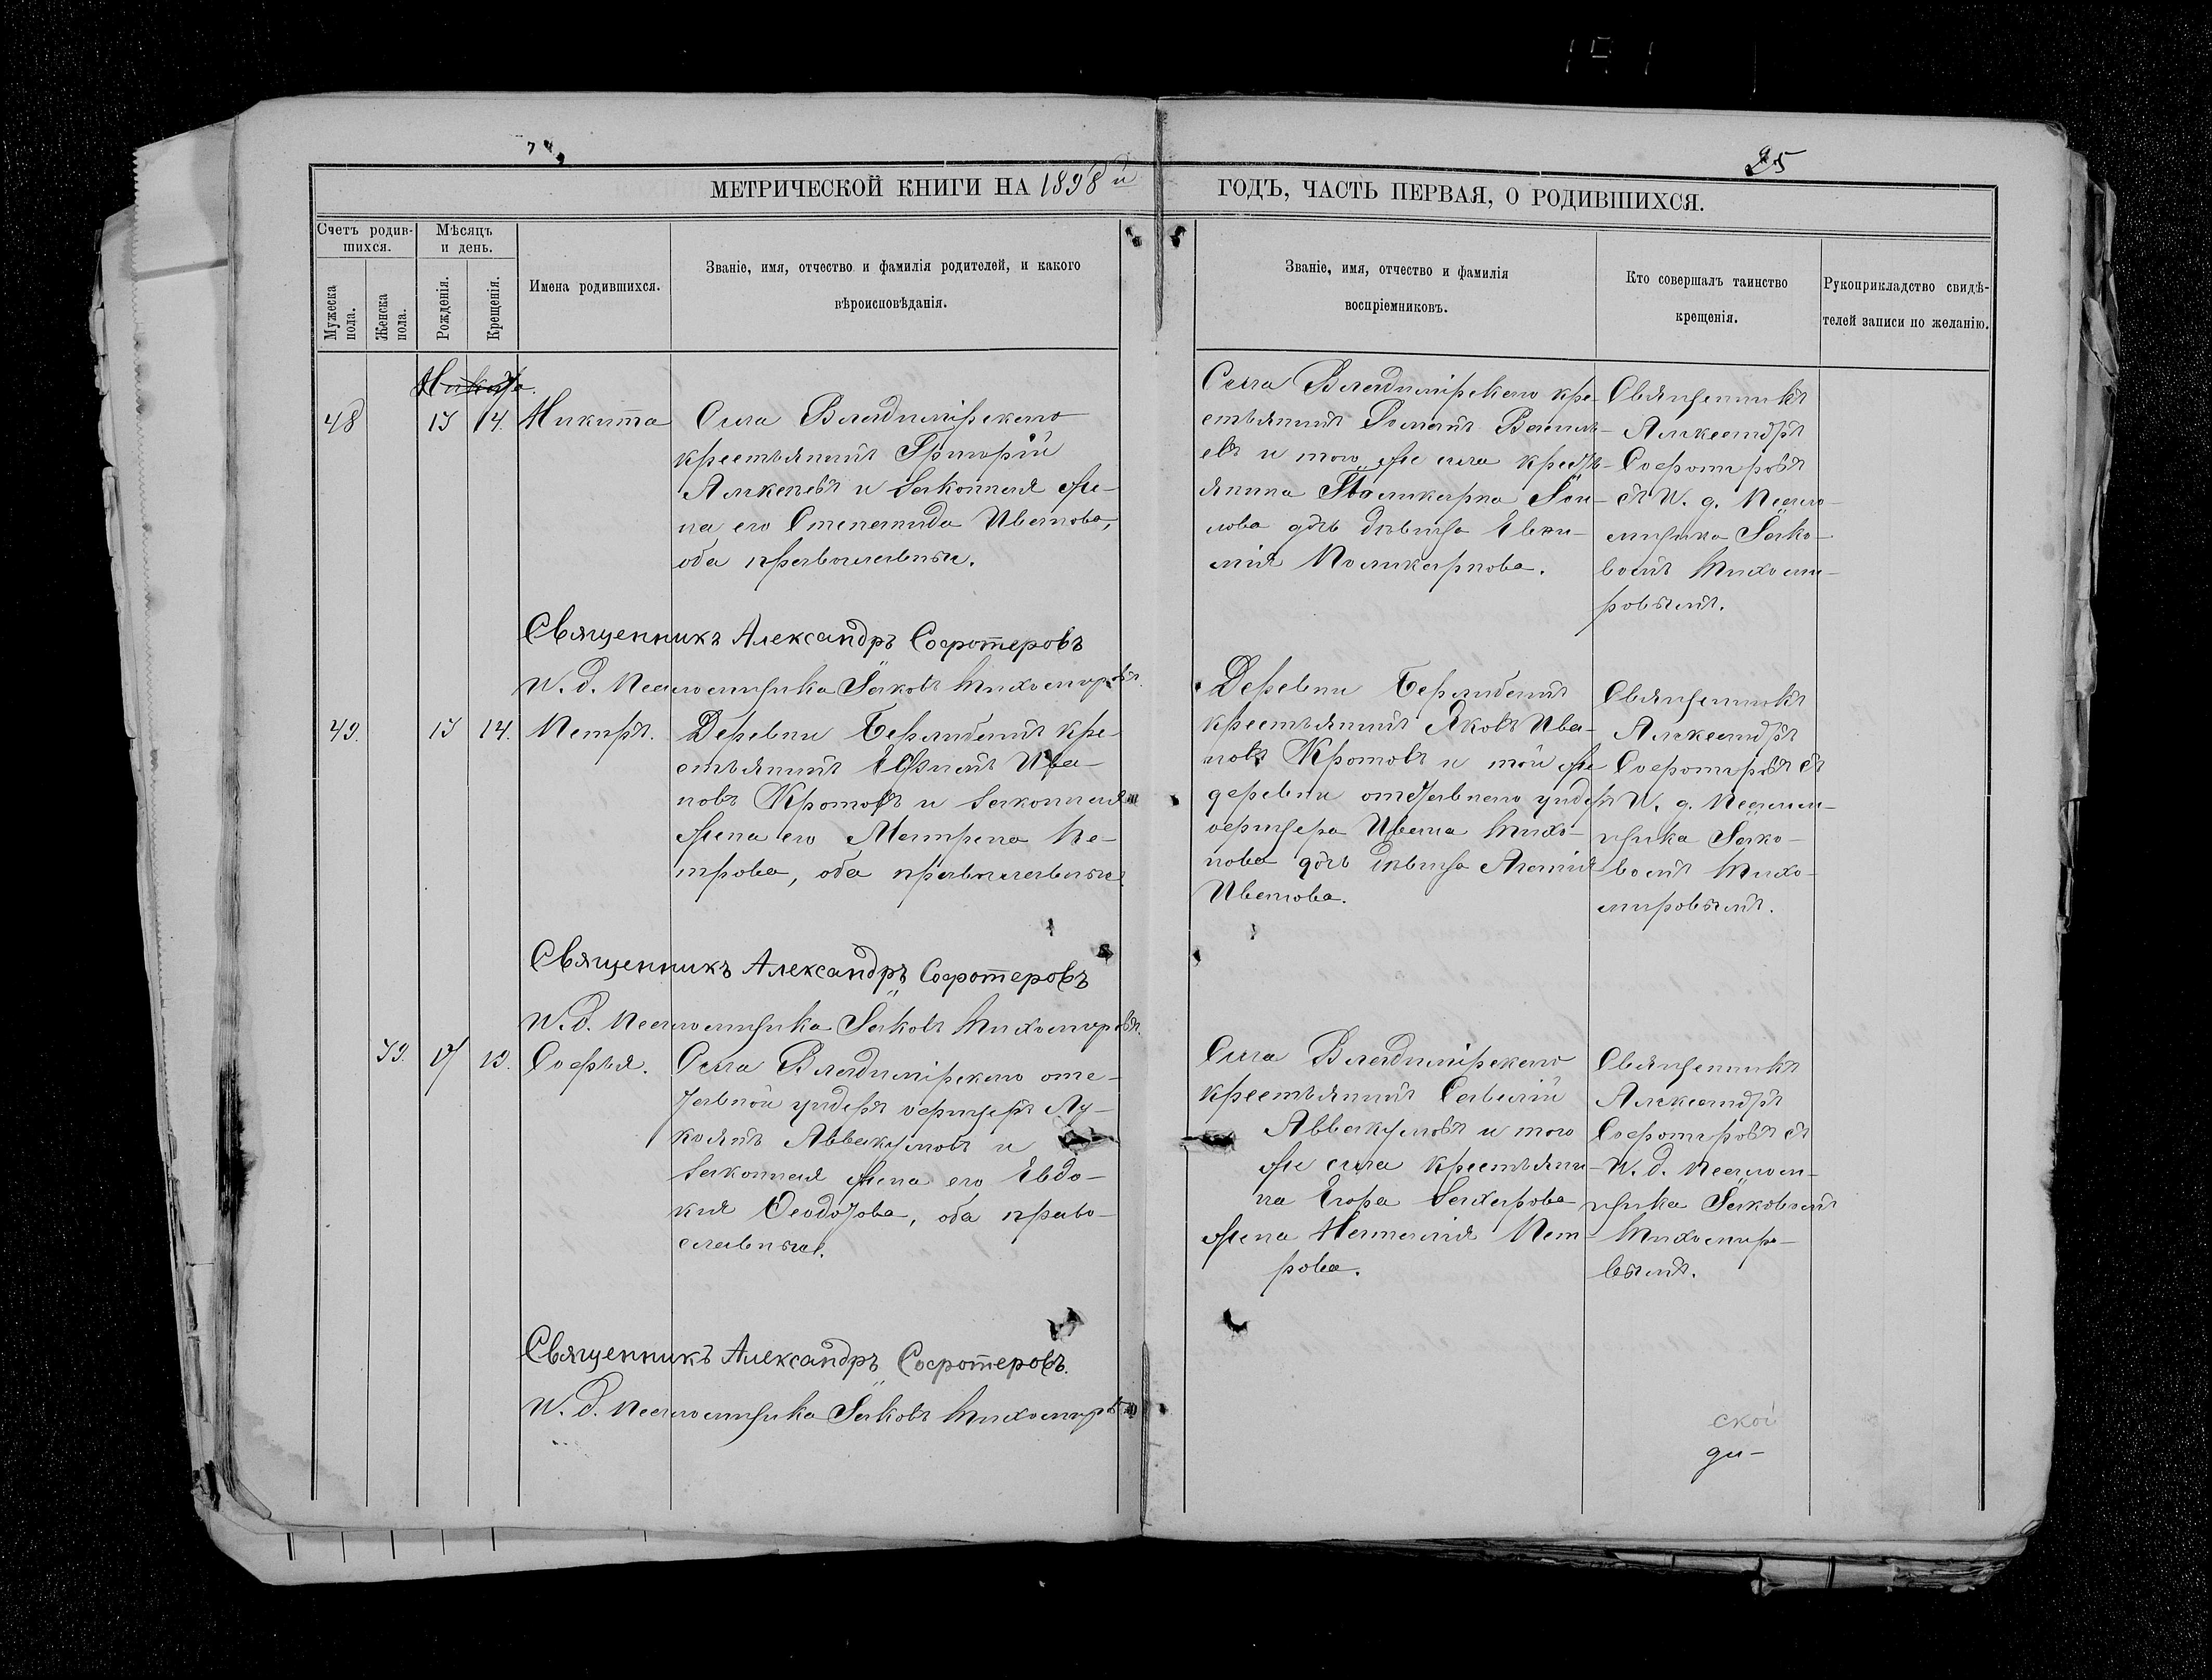 25
МЕТРИЧЕСКОЙ КНИГИ НА 1898 й
ГОДЪ, ЧАСТЬ ПЕРВАЯ, О РОДИВШИХСЯ.
Счетъ родив-
шихся.
Мужеска
пола.
Женска
пола.
Мѣсяцъ
и день.
Рожденія.
Крещенія.
Имена родившихся.
Званіе, имя, отчество и фамилія родителей, и какого
вѣроисповѣданія.
Званіе, имя, отчество и фамилія
воспріемниковъ.
Кто совершалъ таинство
крещенія.
Рукоприкладство свидѣ-
телей записи по желанію.
Никита
48 13 14. Никита
Села Владимірскаго
крестьянинъ Григорій
Алексѣевъ и законная же-
на его Степанида Иванова,
оба православные.
Села Владимірскаго кре-
стьянинъ Романъ Василь-
евъ и того же села кресть-
янина Поликарпа
дочь дѣвица Евѳи-
мія Поликарпова.
Священникъ
Александръ
Софотеровъ
съ И. д. Псало-
мщика Яко-
вомъ Тихоми-
ровымъ.
Священникъ Александръ Софотеровъ
И. д. Псаломщика Яковъ Тихомировъ.
49. 13 14. Петръ.
Деревни кре-
стьянинъ Ива-
новъ Кротовъ и законная
жена его Матрена Пе-
трова, оба православные.
Деревни
крестьянинъ Яковъ Ива-
новъ Кротовъ и той же
деревни отставнаго унтеръ
офицера Ивана Тихо-
нова дочь дѣвица
Иванова.
Священникъ
Александръ
Софотеровъ съ
И. д. Псалом-
щика Яко-
вомъ Тихо-
мировымъ.
Священникъ Александръ Софотеровъ
И. д. Псаломщика Яковъ Тихомировъ.
39. 17 19. Софья.
Села Владимірскаго отс-
тавной унтеръ офицеръ Лу-
Аввакумовъ и
законная жена его Евдо-
кия Ѳеодотова, оба право-
славные.
Села Владимірскаго
крестьянинъ Савелій
Аввакумовъ и того
же села крестьяни-
на Егора Захарова
жена Наталія Пет-
рова.
Священникъ
Александръ
Софотеровъ съ
И. д. Псалом-
щика Яковомъ
Тихомиро-
вымъ.
Священникъ Александръ Софотеровъ.
И. д. Псаломщика Яковъ Тихомировъ
ской
ди-